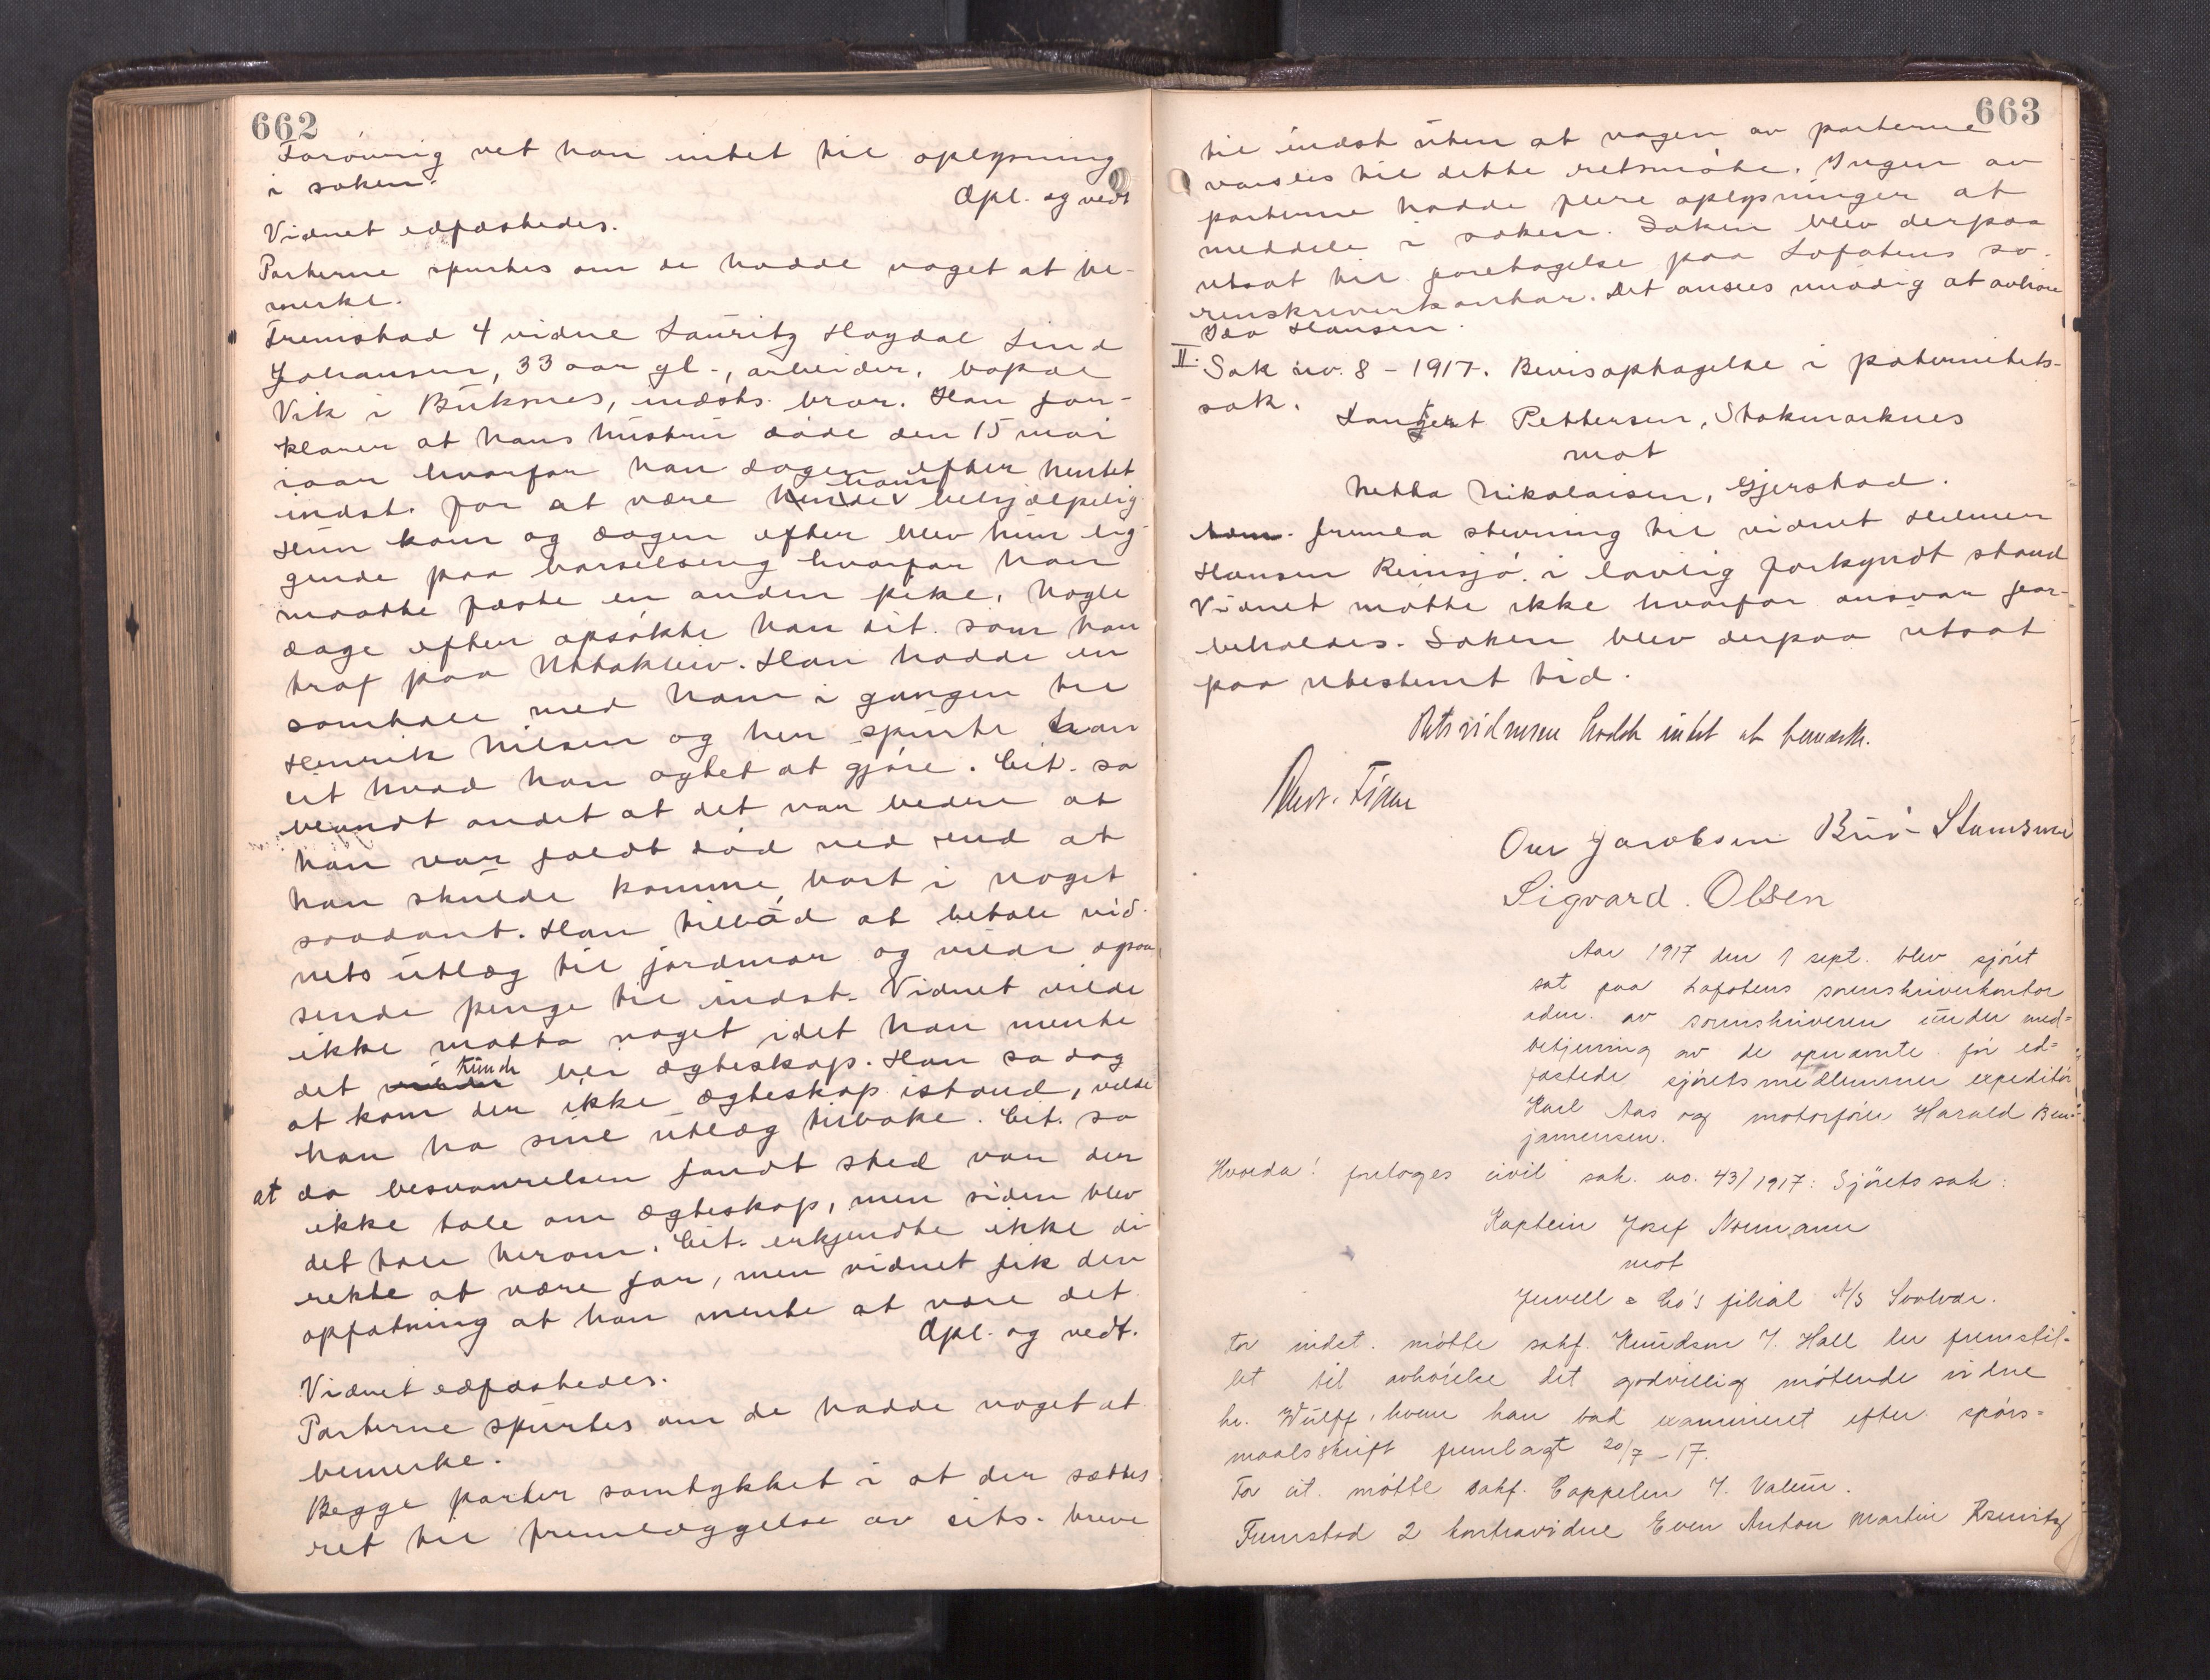 662
Forøvrig vet han intet til oplysning
i saken.
Opl. og vedt
Vidnet edfæstedes.
Parterne spurtes om de hadde noget at be-
merke.
Fremstod 4 vidne Lauritz Hagdal Lind
Johansen, 33 aar gl., arbeider, bopæl
Vik i Buksnes, indsts. bror. Han for-
klarer at hans hustru døde den 15 mai
iaar hvorfor han dagen efter hentet
indst. for at være ham behjælpelig
Hun kom og dagen efter blev hun lig-
gende paa barselseng hvorfor han
maatte fæste en anden pike. Nogle
dage efter opsøkte han cit. som han
traf paa Uttakleiv. Han hadde en
samtale med ham i gangen til
Henrik Nilsen og her spurte han
cit hvad han agtet at gjøre. Cit. sa
blandt andet at det var bedre at
han var faldt død ned end at
han skulde komme bort i noget
saadant. Han tilbød at betale vid-
nets utlæg til jordmor og vilde ogsaa
sende penge til indst. Vidnet vilde
ikke motta noget idet han mente
det kunde bli ægteskap. Han sa dog
at kom der ikke ægteskap istand, vilde
han ha sine utlæg tilbake. Cit. sa
at da besvangrelsen fandt sted var der
ikke tale om ægteskap, men siden blev
det tale herom. Cit. erkjendte ikke di-
rekte at være far, men vidnet fik den
opfatning at han mente at være det.
Opl. og vedt.
Vidnet edfæstedes.
Parterne spurtes om de hadde noget at
bemerke.
Begge parter samtykket i at der sættes
ret til fremlæggelse av cits. breve
663
til indst uten at nogen av parterne
varsles til dette retsmøte. Ingen av
parterne hadde flere oplysninger at
meddele i saken. Saken blev derpaa
utsat til foretagelse paa Lofotens so-
renskriverkontor. Det ansees unødig at avhøre
Ida Hansen.
II. Sak nr. 8 - 1917. Bevisoptagelse i paternitets-
sak.
Pettersen, Stokmarknes
mot
Netta Nikolaisen, Gjerstad.
fremla stevning til vidnet Hilmer
Hansen i lovlig forkyndt stand
Vidnet møtte ikke hvorfor ansvar for-
beholdes. Saken blev derpaa utsat
paa ubestemt tid.
Retsvidnerne hadde intet at bemerke.
Ove Jacobsen
Sigvard. Olsen
Aar 1917 den 1 sept. blev sjøret
sat paa Lofotens sorenskriverkontor
adm. av sorenskriveren under med-
betjening av de opnævnte før ed-
fæstede sjøretsmedlemmer expeditør
Karl Aas og motorfører Harald Ben-
jamensen.
Hvorda! foretoges civil sak. no. 43/1917: Sjøretssak:
Kaptein Josef Normann
mot
Juvell & Co's filial A/S Svolvær.
For indst. møtte sakf. Knudsen f. Hall der fremstil-
let til avhørelse det godvillig møtende vidne
hr. Wulff, hvem han bad examineret efter spørs-
maalsskrift fremlagt 20/7 - 17.
For cit. møtte sakf. Cappelen f. Valeur.
Fremstod 2 kontravidne Even Anton Martin